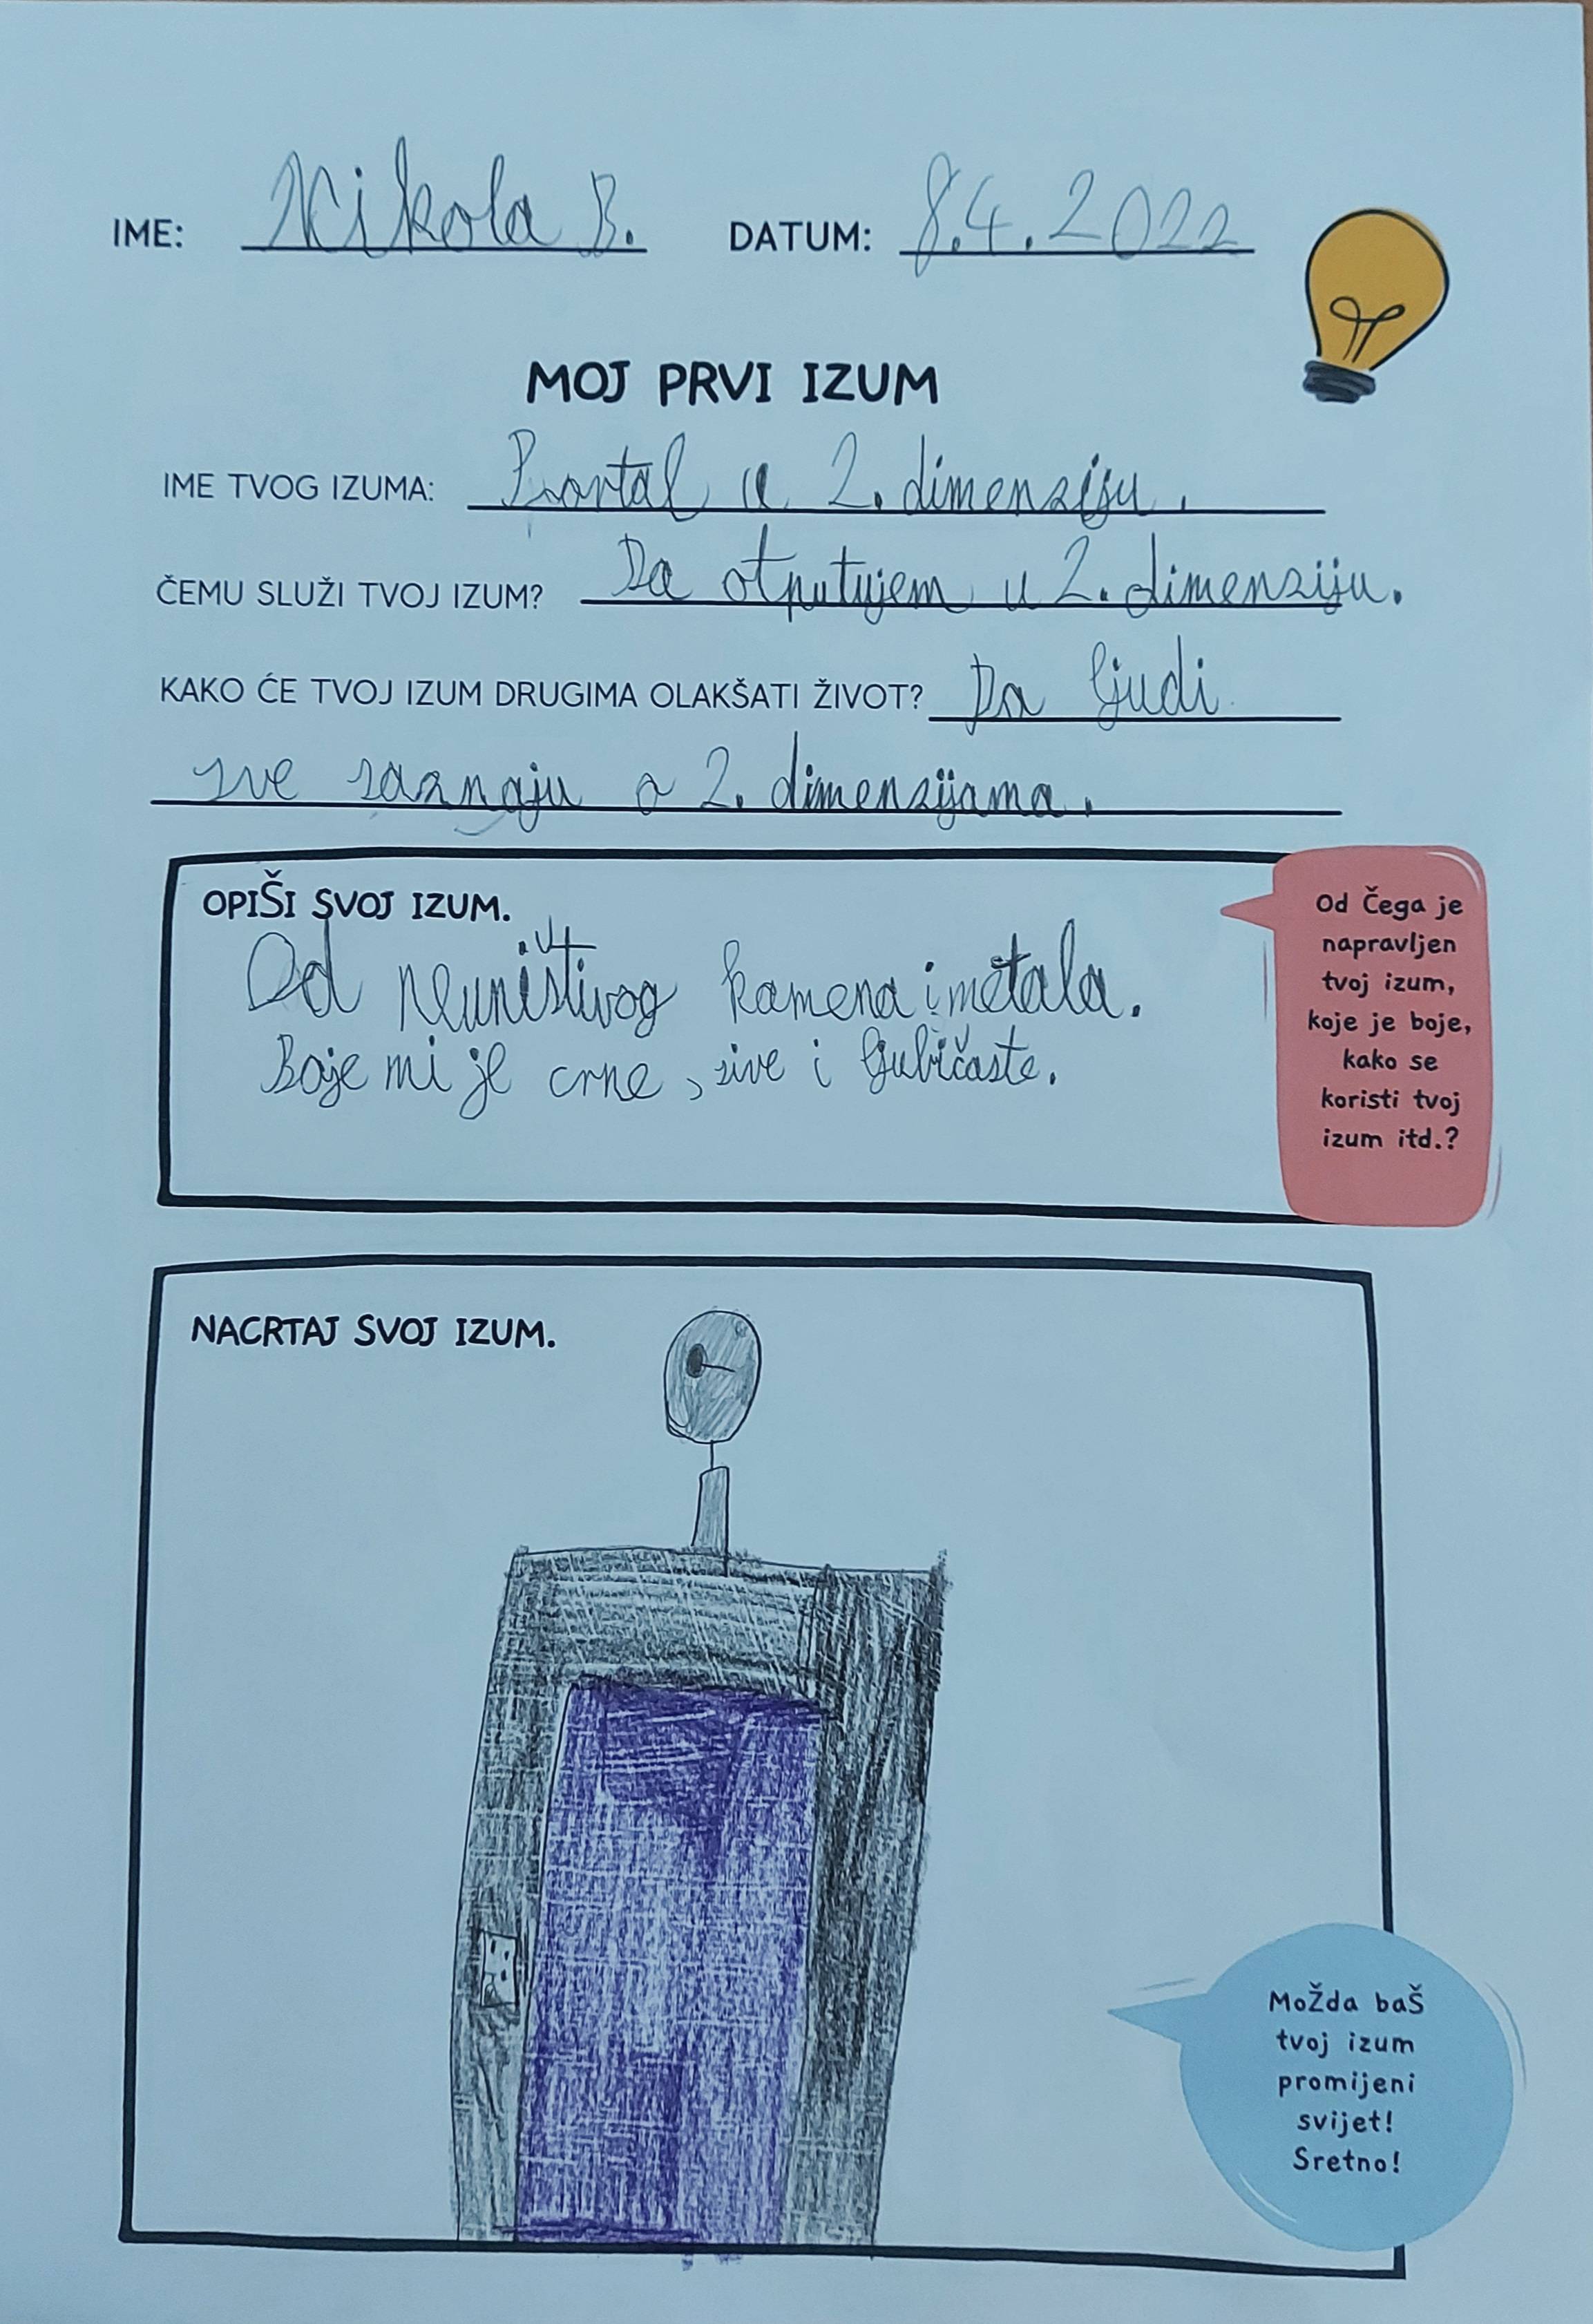 IME: Nikola B. DATUM: 8.4.2022
MOJ PRVI IZUM
IME TVOG IZUMA: Portal u 2. dimenziju.
ČEMU SLUŽI TVOJ IZUM? Da otputujem u 2. dimenziju.
KAKO ĆE TVOJ IZUM DRUGIMA OLAKŠATI ŽIVOT? Da ljudi
sve saznaju o 2. dimenzijama.
OPIŠI SVOJ IZUM.
Od neuništivog kamena i metala.
Boje mi je crne, sive i ljubičaste.
Od Čega je
napravljen
tvoj izum,
koje je boje,
kako se
koristi tvoj
izum itd.?
NACRTAJ SVOJ IZUM.
MoŽda baŠ
tvoj izum
promijeni
svijet!
Sretno!